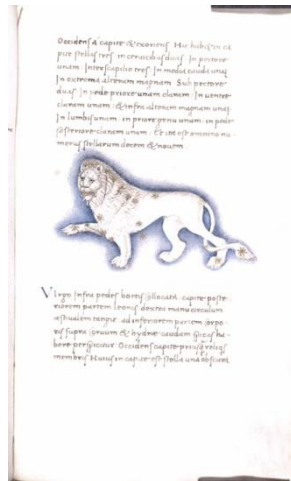 Occidens a capite & exoriens Hic habet in ca
pite stellas tres in cervicibus duas In pectore
unam Interscapilio tres In media cauda unā
In extrema alteram magnam Sub pectore
duas In pede priore unam claram In ventre
claram unam & infra alteram magnam unā
In lumbis unam in priore genu unam in pede
posteriore claram unam Et ita est omnino nu
merus stellarum decem & novem
Virgo Infra pedes bootis collocata capite poste
riorem partem leonis dextra manu circulum
aestivalem tangit ad inferiorem partem corpo
ris supra corvum & hydrae caudam
bere perspicitur Occidens capite prius
membris Huius in capite est stella una obscura